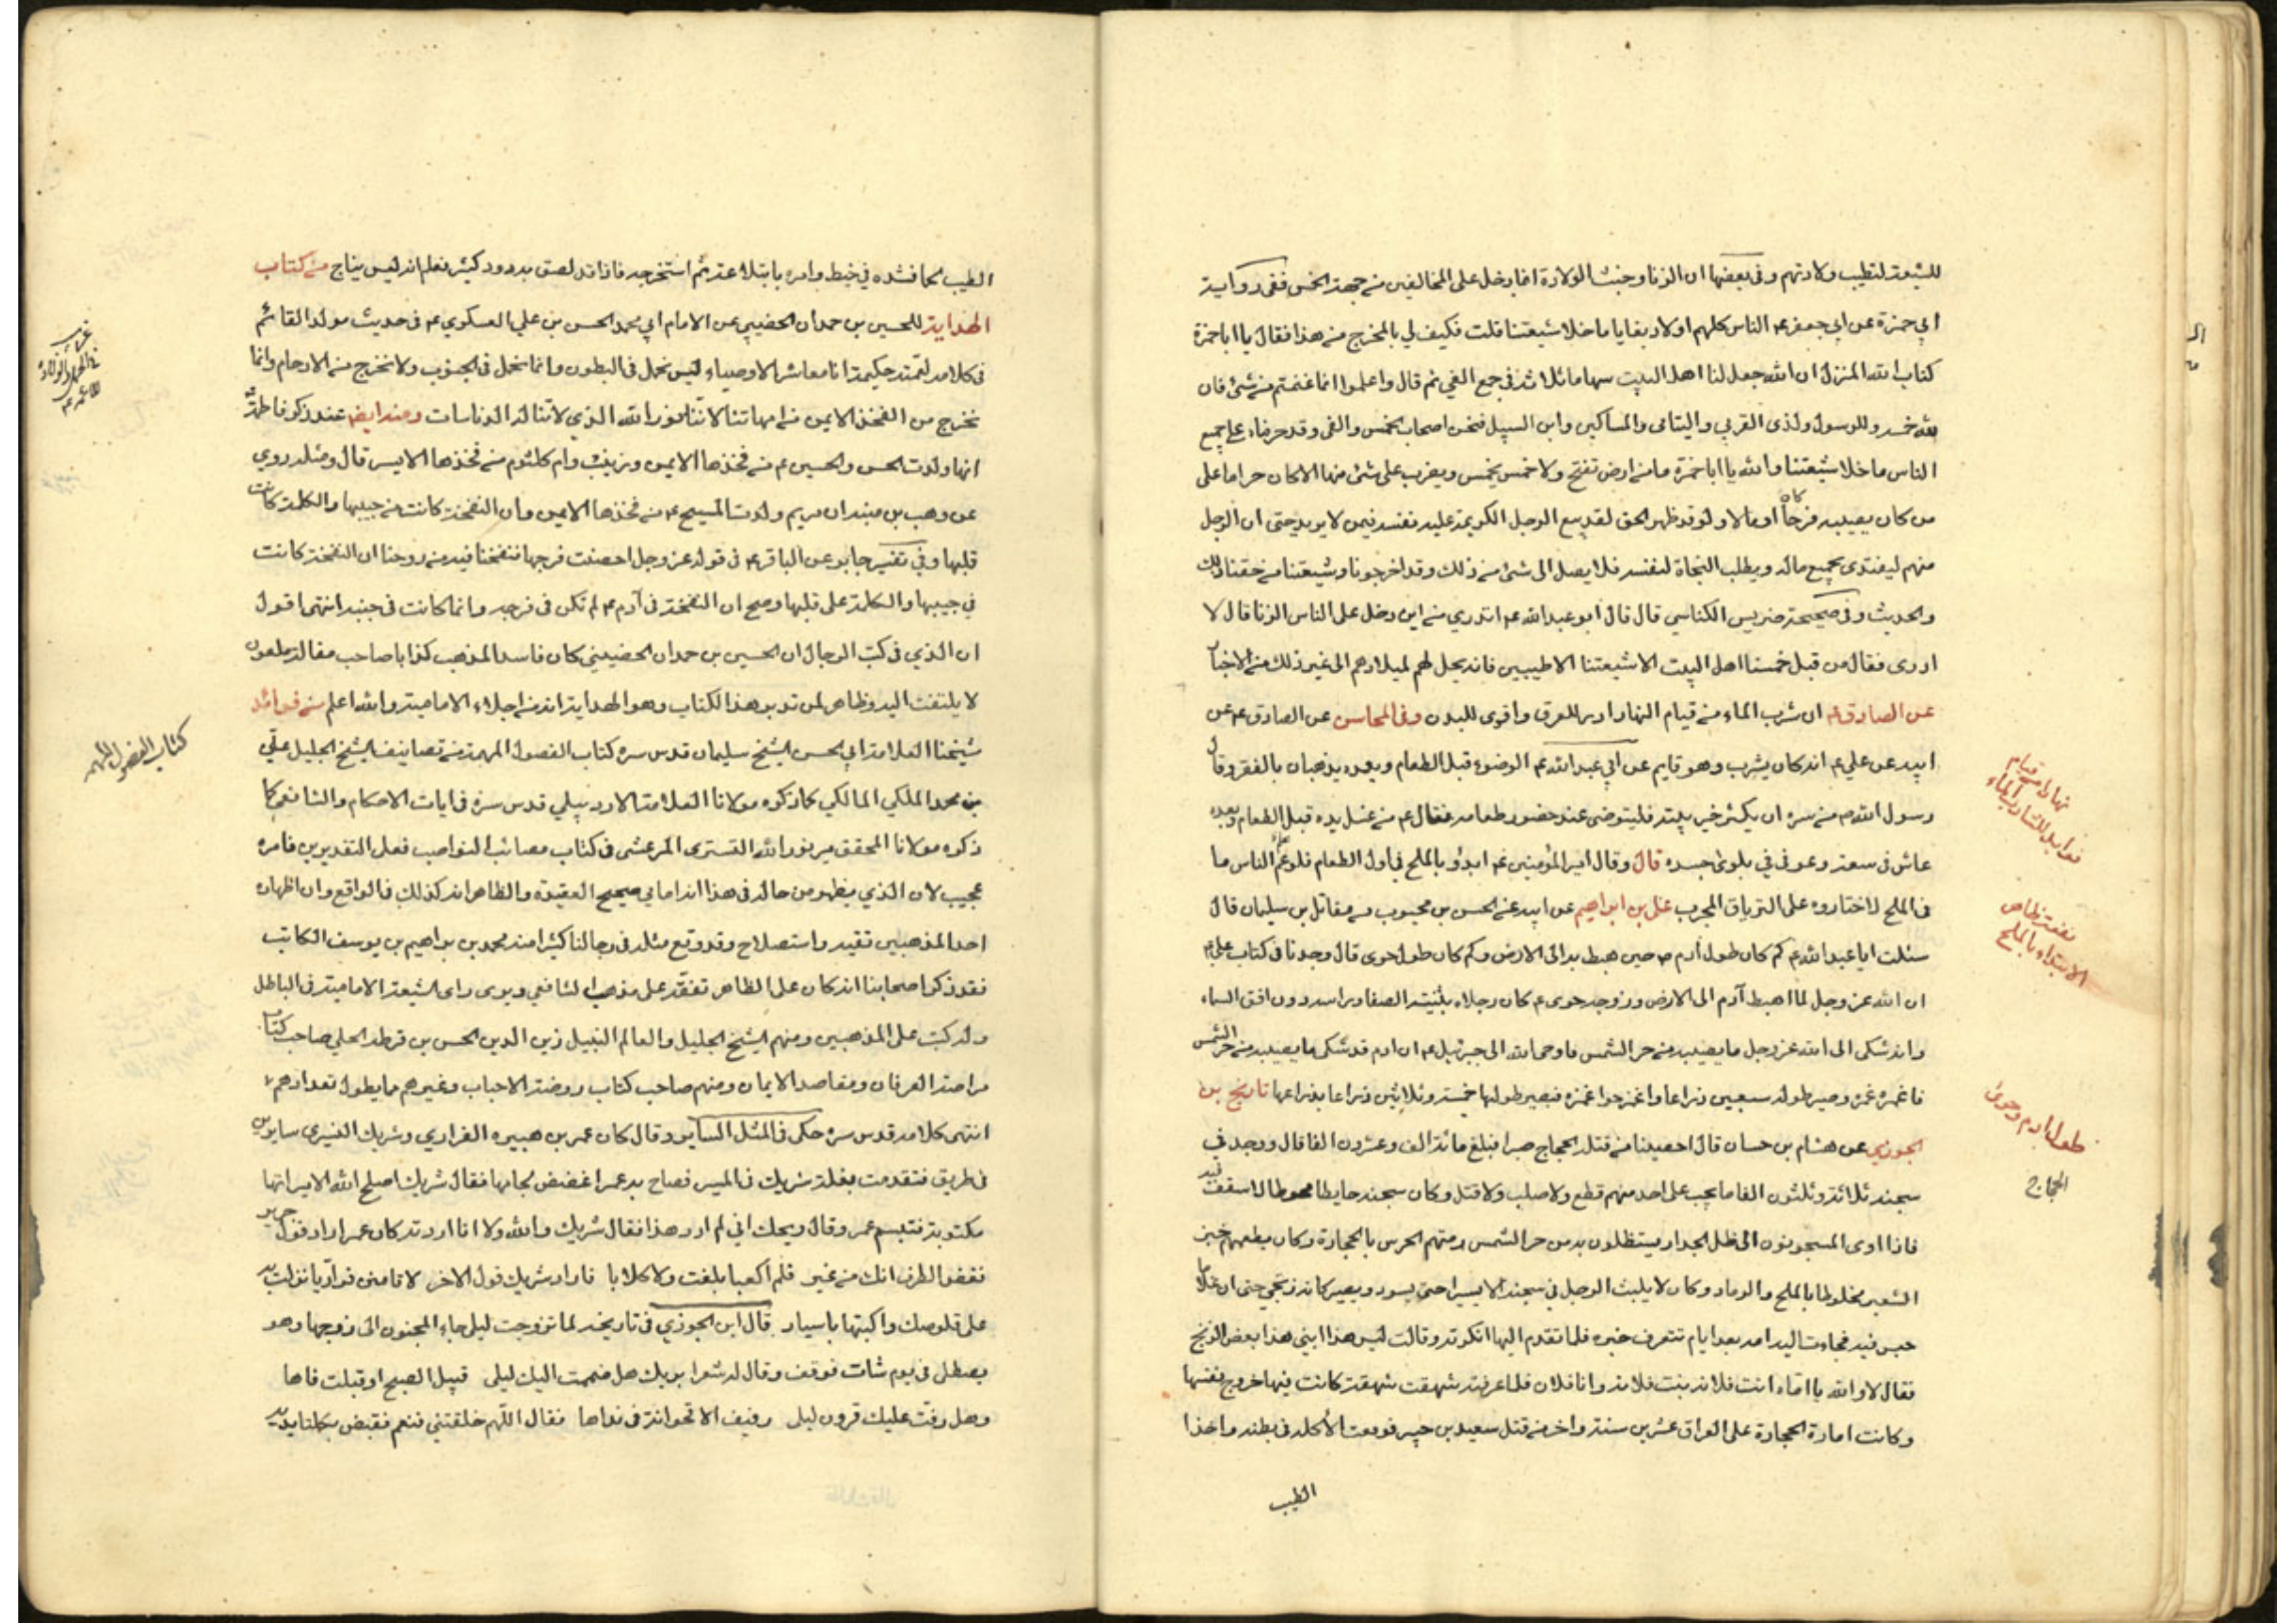 للشيعة لتطيب ولادتهم وفي بعضها ان الزنا وخبث الولادة انما دخل على المخالفين من جهة الخمس ففي رواية
ابي حمزة عن ابي جعفر ع الناس كلهم اولاد بغايا ما خلا شيعتنا قلت فكيف لي بالمخرج من هذا فقال يا ابا حمزة
كتاب الله المنزل ان الله جعل لنا اهل البيت سهاما ثلاثة في جميع الفيء ثم قال واعلموا انما غنمتم من شئ فان
لله خمسه وللرسول ولذي القربي واليتامى والمساكين وابن السبيل فنحن اصحاب الخمس والفئ وقد حرمناه على جميع
الناس ما خلا شيعتنا والله يا ابا حمزة ما من ارض تفتح ولا خمس يخمس ويضرب على شئ منها الا كان حراما على
من كان يصيبه فرجا كان او مالا ولو قد ظهر الحق لقد بيع الرجل الكريمة عليه نفسه فيمن لا يريد حتى ان الرجل
منهم ليفتدى بجميع ماله ويطلب النجاة لنفسه فلا يصل الى شئ من ذلك وقد اخرجونا وشيعتنا من حقنا ذلك
والحديث وفي صحيحة ضريس الكناسي قال قال ابو عبد الله ع اتدري من اين دخل على الناس الزنا قال لا
ادرى فقال من قبل خمسنا اهل البيت الا شيعتنا الاطيبين فانه يحل لهم لميلادهم الى غير ذلك من الاخبار
عن الصادق ع ان شرب الماء من قيام النهار ادر للعرق واقوى للبدن وفي المحاسن عن الصادق ع عن
ابيه عن علي ع انه كان يشرب وهو قايم عن ابي عبد الله ع الوضوء قبل الطعام وبعده يذهبان بالفقر وقال
رسول الله ص من سره ان يكثر خير بيته فليتوضى عند حضور طعامه فقال ع من غسل يده قبل الطعام وبعده
عاش في سعة وعوفي في بلوى جسده قال وقال امير المؤمنين ع ابدؤ بالملح في اول الطعام فلو علم الناس ما
في الملح لاختاروه على الترياق المجرب علي بن ابراهيم عن ابيه عن الحسن بن محبوب عن مقاتل بن سليمان قال
سئلت ابا عبد الله ع كم كان طول ادم ص حين هبط به الى الارض وكم كان طول حوى قال وجدنا في كتاب علي ع
ان الله عز وجل لما اهبط آدم الى الارض وزوجه حوى ع كان رجلاه بثنية الصفا وراسه دون افق السماء
وانه شكى الى الله عز وجل ما يصيبه من حر الشمس فاوحى الله الى جبرئيل ع ان ادم قد شكى ما يصيبه من حر الشمس
فاغمزه غمزه وصير طوله سبعين ذراعا واغمز حوا غمزه فيصير طولها خمسة وثلاثين ذراعا بذراعها تاريخ بن
الجوزي عن هشام بن حسان قال احصينا من قتله الحجاج صبرا فبلغ مائة الف وعشرون الفا قال ووجد في
سجنه ثلاثة وثلثون الفا ما يجب على احد منهم قطع ولا صلب ولا قتل وكان سجنه حايطا محوطا لا سقف فيه
فاذا اوى المسجونون الى ظل الجدار يستظلون به من حر الشمس رمتهم الحرس بالحجارة وكان يطعمهم خبز
الشعير مخلوطا بالملح والرماد وكان لا يلبث الرجل في سجنه الا يسيرا حتى يسود ويصير كانه زنجي حتى ان غلاما
حبس فيه فجاءت اليه امه بعد ايام تتعرف خبره فلما تقدم اليها انكرته وقالت ليس هذا ابني هذا بعض الزنج
فقال لا والله يا اماه انت فلانه بنت فلانه وانا فلان فلما عرفته شهقت شهقة كانت فيها خروج نفسها
وكانت امارة الحجارة على العراق عشرين سنة واخر من قتل سعيد بن جبير فوقعت الاكله في بطنه واخذ ا
الطيب
نهارا من قيام
فوايد للشارب الماء
الابتداء بالملح
طول ادم وحوى
الحجاج
الطيب لحما فشده في خيط وامره بابتلاعه ثم استخرجه فاذا قد لصق به دود كثير فعلم انه ليس بناج من كتاب
الهداية للحسين بن حمدان الحضيني عن الامام ابي محمد الحسن بن علي العسكري ع في حديث مولد القائم
في كلامه لعمته حكيمة انا معاشر الاوصياء ليس نحمل في البطون وانما نحمل في الجنوب ولا نخرج من الارحام وانما
نخرج من الفخذ الايمن من امهاتنا لاننا نور الله الذي لا تناله الدناسات ومنه ايضا عند ذكر فاطمة
انها ولدت الحسن والحسين ع من فخذها الايمن وزينب وام كلثوم من فخذها الايسر قال ومثله روي
عن وهب بن منبه ان مريم ولدت المسيح ع من فخذها الايمن وان النفخة كانت من جيبها والكلمة كانت
قلبها وفي تفسير جابر عن الباقر ع في قوله عز وجل احصنت فرجها فنفخنا فيه من روحنا ان النفخة كانت
في جيبها والكلمة على قلبها وصح ان النفخة في آدم ع لم تكن في فرجه وانما كانت في جنبه انتهى اقول
ان الذي في كتب الرجال ان الحسين بن حمدان الحضيني كان فاسد المذهب كذابا صاحب مقالة ملعون
لا يلتفت اليه وظاهر لمن تدبر هذا الكتاب وهو الهداية انه من اجلاء الامامية والله اعلم من فوائد
شيخنا العلامة ابي الحسن الشيخ سليمان قدس سره كتاب الفصول المهمة من تصانيف الشيخ الجليل علي
بن محمد الملكي المالكي كما ذكره مولانا العلامة الاردبيلي قدس سره في ايات الاحكام والشافعي كما
ذكره مولانا المحقق مير نور الله التستري المرعشى في كتاب مصائب النواصب فعلى التقديرين فامره
عجيب لان الذي يظهر من حاله في هذا انه امامي صحيح العقيدة والظاهر انه كذلك في الواقع وان اظهاره
احد المذهبين تقيه واستصلاح وقد وقع مثله في رجالنا كثيرا منه محمد بن ابراهيم بن يوسف الكاتب
فقد ذكر اصحابنا انه كان على الظاهر تفقه على مذهب الشافعي ويرى راى الشيعة الامامية في الباطل
وله كتب على المذهبين ومنهم الشيخ الجليل والعالم النبيل زين الدين الحسن بن الحلي صاحب كتاب
مراصد العرفان ومقاصد الايمان ومنهم صاحب كتاب روضة الاحباب وغيرهم ما يطول تعدادهم
انتهى كلامه قدس سره حكى في المثل السائر وقال كان عمر بن هبيره الفزاري وشريك النميري سايرين
في طريق فتقدمت بغلة شريك في المسير فصاح به عمر اغضض لجامها فقال شريك اصلح الله الامير انها
مكتوبة فتبسم عمر وقال ويحك اني لم ارد هذا فقال شريك والله ولا انا اردته كان عمر اراد قول جرير
فغض الطرف انك من نمير فلا كعبا بلغت ولا كلابا فاراد شريك قول الاخر لا تامنن فزاريا نزلت به
على قلوصك واكتبها باسيار قال ابن الجوزي في تاريخه لما تزوجت ليلى جاء المجنون الى زوجها وهو
يصطلى في يوم شات فوقف وقال له شعرا بربك هل ضممت اليك ليلى قبيل الصبح او قبلت فاها
وهل رفت عليك قرون ليلى رفيف الاقحوانة في نداها فقال اللهم خلفتني فنعم فقبض بكلتا يديه
كتاب الفصول المهمه